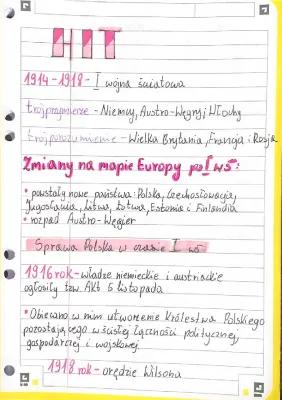 HIT
1914-1918- I wojna światowa
trójprzymierze - Niemcy, Austro-Węgry i Włochy
trójporozumienie - Wielka Brytania, Francja i Rosja
Zmiany na mapie Europy po I wś:
• powstały nowe państwa: Polska, Czechosłowacja,
Jugosławia, Litwa, Łotwa, Estonia i Finlandia
• rozpad Austro-Węgier
Sprawa Polska w czasie I wś
1916 rok - władze niemieckie i austriackie
ogłosiły tzw. Akt 5 listopada
• Obiecano w nim utworzenie Królestwa Polskiego
pozostającego w ścisłej łączności politycznej,
gospodarczej i wojskowej.
1918 rok - orędzie Wilsona